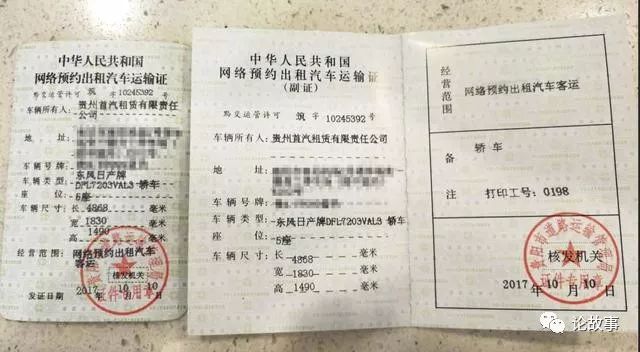 中华人民共和国
网络预约出租汽车运输证
黔交运管许可 筑 字 10245392 号
车辆所有人: 贵州首汽租赁有限责任
公司
地 址:
车辆号牌:
车辆类型: 东风日产牌
DFL7203VAL3 轿车
座 位: 5座
车辆尺寸: 长 4868 毫米
宽 1830 毫米
高 1490 毫米
经营范围: 网络预约出租汽车
客运
核发机关
发证日期 2017 年 10 月 10 日
中华人民共和国
网络预约出租汽车运输证
(副证)
黔交运管许可 筑 字 10245392 号
车辆所有人: 贵州首汽租赁有限责任公司
地 址:
车辆号牌:
车辆类型: 东风日产牌DFL7203VAL3 轿车
座 位: 5座
车辆尺寸: 长 4868 毫米
宽 1830 毫米
高 1490 毫米
经营范围
网络预约出租汽车客运
备注
轿车
打印工号: 0198
贵阳市道路运输管理局
证件专用章
核发机关
2017 年 10 月 10 日
论故事